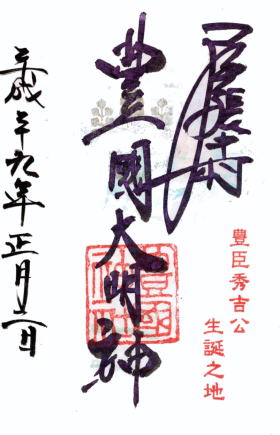 尾張中村
豊臣秀吉公
生誕之地
豊國大明神
平成二十九年正月二日